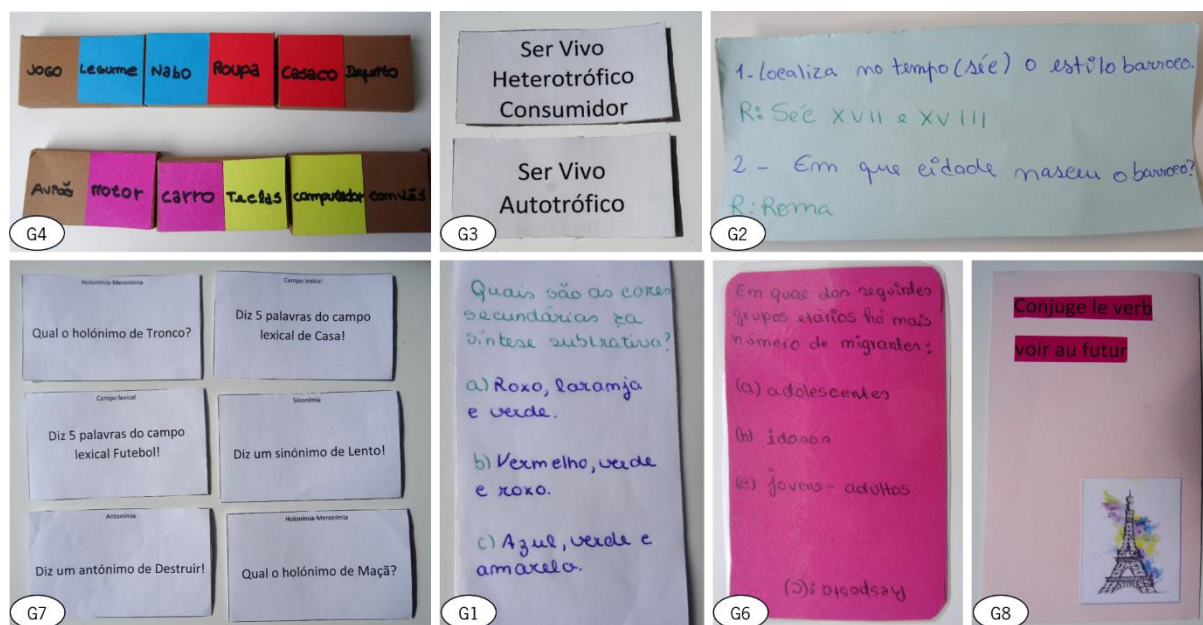 Jogo Legume Nabo Roupa Casaco Desporto
Aviões motor carro Teclas computador comviés
G4
Ser Vivo
Heterotrófico
Consumidor
Ser Vivo
Autotrófico
G3
1- Localiza no tempo (séc) o estilo barroco.
R: Séc XVII e XVIII
2 - Em que cidade nasceu o barroco?
R: Roma
G2
Holonímia-Meronímia
Qual o holónimo de Tronco?
Campo lexical
Diz 5 palavras do campo
lexical de Casa!
Campo lexical
Diz 5 palavras do campo
lexical Futebol!
Sinonímia
Diz um sinónimo de Lento!
Antonímia
Diz um antónimo de Destruir!
Holonímia-Meronímia
Qual o holónimo de Maçã?
G7
Quais são as cores
secundárias na
síntese subtrativa?
a) Roxo, laranja
e verde.
b) Vermelho, verde
e roxo.
c) Azul, verde e
amarelo.
G1
Em qual dos seguintes
grupos etários há mais
número de migrantes:
(a) adolescentes
(b) idosos
(c) jovens-adultos
Resposta: (c)
G6
Conjuge le verb
voir au futur
G8